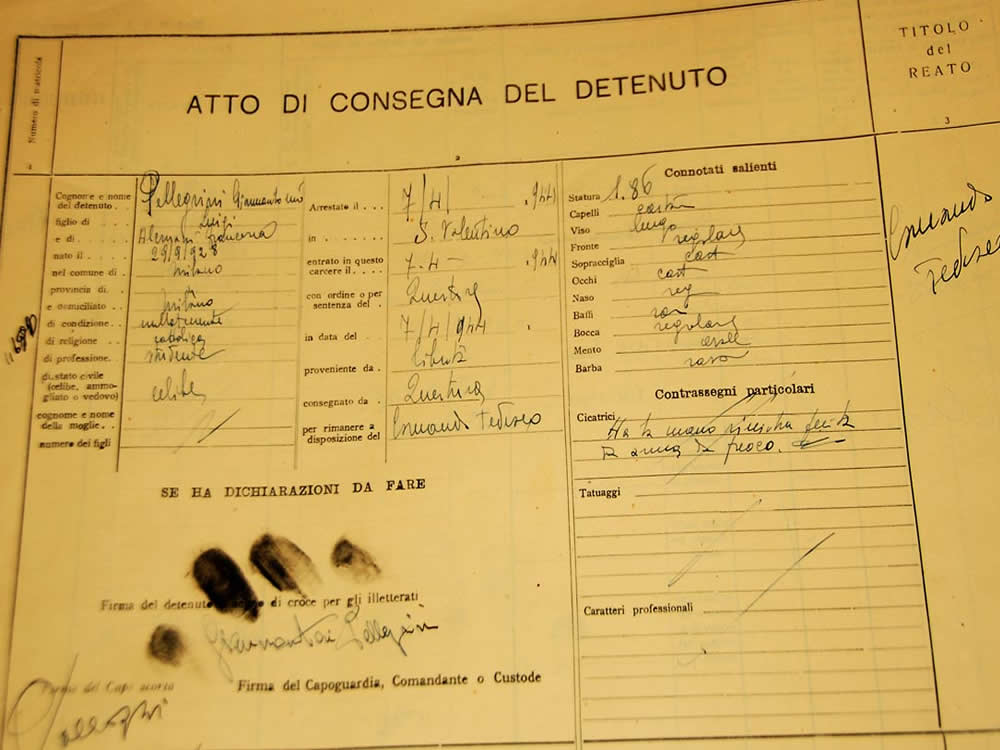 Numero di matricola
ATTO DI CONSEGNA DEL DETENUTO
TITOLO
del
REATO
2
3
Cognome e nome
del detenuto . .
Pellegrini
figlio di . . . .
Luigi
e di . . . . . .
nato il . . . .
29/9/928
nel comune di .
Milano
provincia di. .
di
e domiciliato . .
Milano
di condizione. . .
nullatenente
di religione . . .
cattolica
di professione. .
studente
di stato civile
(celibe, ammo-
gliato o vedovo)
celibe
cognome e nome
della moglie. . .
numero dei figli
Arrestato il . . . .
7/4/ .944
in . . . . . . .
S. Valentino
entrato in questo
carcere il. . . . .
7-4- .944
con ordine o per
sentenza del . .
Questura
in data del . . .
7/4/944
proveniente da . .
libertà
consegnato da . .
Questura
per rimanere a
disposizione del
Comando Tedesco
Connotati salienti
Statura 1.86
Capelli cast
Viso lungo
Fronte regolare
Sopracciglia cast
Occhi cast
Naso reg
Baffi
Bocca regolare
Mento
Barba raso
Contrassegni particolari
Cicatrici
Ha la mano sinistra ferita
da arma da fuoco.
Tatuaggi
Caratteri professionali
Comando
Tedesco
SE HA DICHIARAZIONI DA FARE
Firma del detenuto o segno di croce per gli illetterati
Pellegrini
Firma del Capo scorta
Firma del Capoguardia, Comandante o Custode